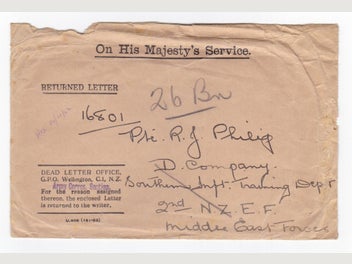 On His Majesty's Service.
RETURNED LETTER
26 Bn
16801
Pte. R. J. Philip
D. Company.
DEAD LETTER OFFICE,
G.P.O. Wellington, C.I., N.Z.
Army Corres. Section
For the reason assigned
thereon, the enclosed Letter
is returned to the writer.
Southern Inft. Training Dept
2nd N.Z.E.F.
Middle East Forces